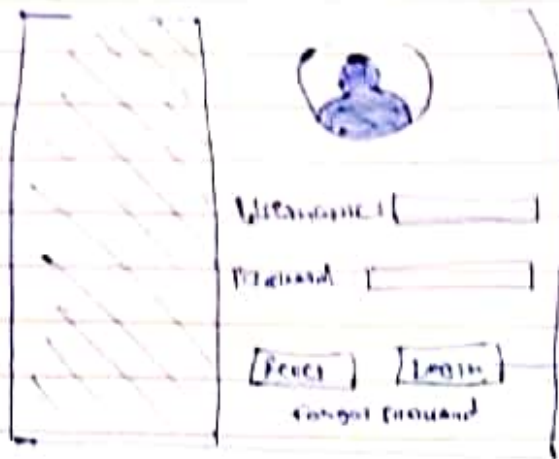 Username : 
Password
Reset Login
Forgot Password